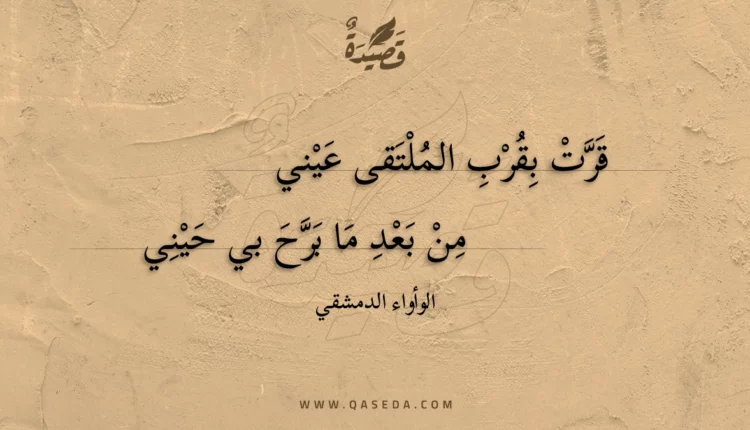 قَصِيْدَةٌ
قَرَّتْ بِقُرْبِ المُلْتَقى عَيْني
مِنْ بَعْدِ مَا بَرَّحَ بي حَيْنِي
الوأواء الدمشقي
WWW.QASEDA.COM